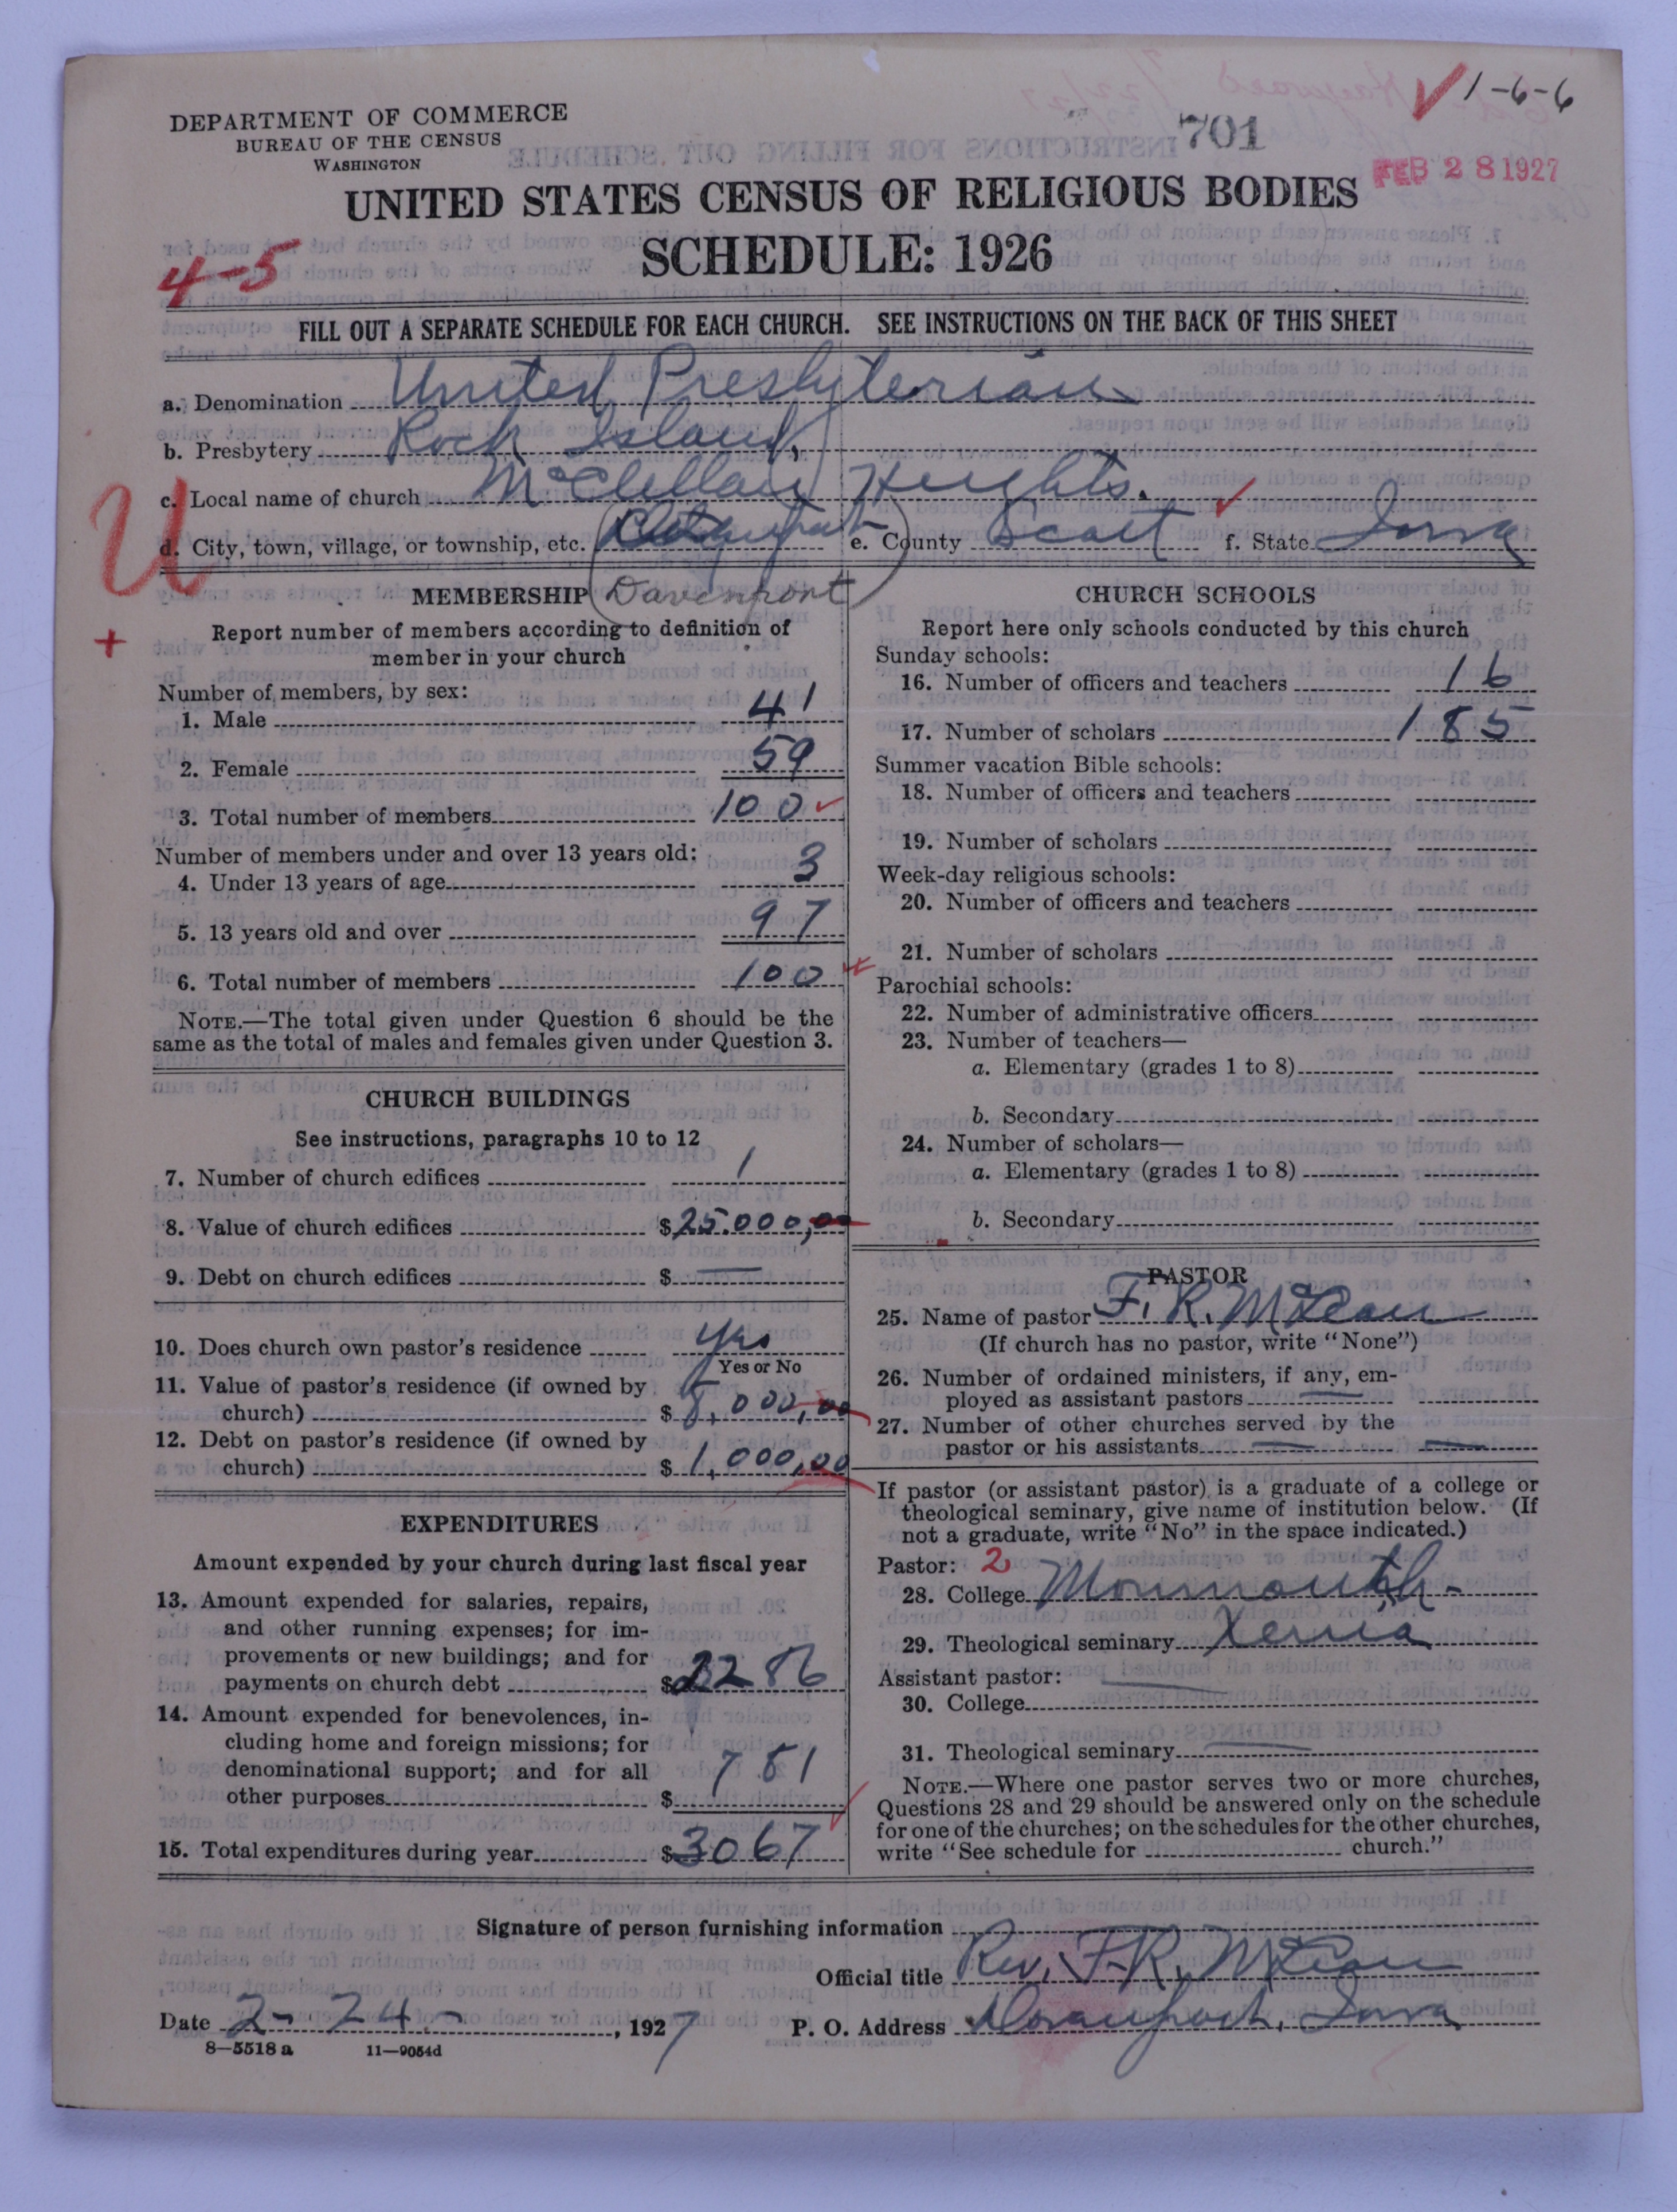 1-6-6
DEPARTMENT OF COMMERCE
BUREAU OF THE CENSUS
WASHINGTON
701
FEB 28 1927
UNITED STATES CENSUS OF RELIGIOUS BODIES
SCHEDULE: 1926
4-5
FILL OUT A SEPARATE SCHEDULE FOR EACH CHURCH. SEE INSTRUCTIONS ON THE BACK OF THIS SHEET
a. Denomination United Presbyterian
b. Presbytery Rock Island,
c. Local name of church McClellan Heights.
d. City, town, village, or township, etc. e. County Scott f. State Iowa
U
+
MEMBERSHIP (Davenport)
Report number of members according to definition of
member in your church
Number of members, by sex:
1. Male 41
2. Female 59
3. Total number of members 100
Number of members under and over 13 years old:
4. Under 13 years of age 3
5. 13 years old and over 97
6. Total number of members 100
NOTE.—The total given under Question 6 should be the
same as the total of males and females given under Question 3.
CHURCH BUILDINGS
See instructions, paragraphs 10 to 12
7. Number of church edifices 1
8. Value of church edifices $25.000,00
9. Debt on church edifices $ —
10. Does church own pastor's residence Yes
Yes or No
11. Value of pastor's residence (if owned by
church) $ 8,000,00
12. Debt on pastor's residence (if owned by
church) $ 1,000,00
EXPENDITURES
Amount expended by your church during last fiscal year
13. Amount expended for salaries, repairs,
and other running expenses; for im-
provements or new buildings; and for
payments on church debt $2286
14. Amount expended for benevolences, in-
cluding home and foreign missions; for
denominational support; and for all
other purposes $ 781
15. Total expenditures during year $3067
CHURCH SCHOOLS
Report here only schools conducted by this church
Sunday schools:
16. Number of officers and teachers 16
17. Number of scholars 185
Summer vacation Bible schools:
18. Number of officers and teachers
19. Number of scholars
Week-day religious schools:
20. Number of officers and teachers
21. Number of scholars
Parochial schools:
22. Number of administrative officers
23. Number of teachers—
a. Elementary (grades 1 to 8)
b. Secondary
24. Number of scholars—
a. Elementary (grades 1 to 8)
b. Secondary
PASTOR
25. Name of pastor F. R. McLean
(If church has no pastor, write "None")
26. Number of ordained ministers, if any, em-
ployed as assistant pastors —
27. Number of other churches served by the
pastor or his assistants — —
If pastor (or assistant pastor) is a graduate of a college or
theological seminary, give name of institution below. (If
not a graduate, write "No" in the space indicated.)
Pastor: 2
28. College Monmouth-
29. Theological seminary Xenia
Assistant pastor: —
30. College
31. Theological seminary —
NOTE.—Where one pastor serves two or more churches,
Questions 28 and 29 should be answered only on the schedule
for one of the churches; on the schedules for the other churches,
write "See schedule for church."
Signature of person furnishing information
Official title Rev. F. R. McLean
Date 2-24-, 1927 P. O. Address Davenport, Iowa
8—5518 a 11—9054d